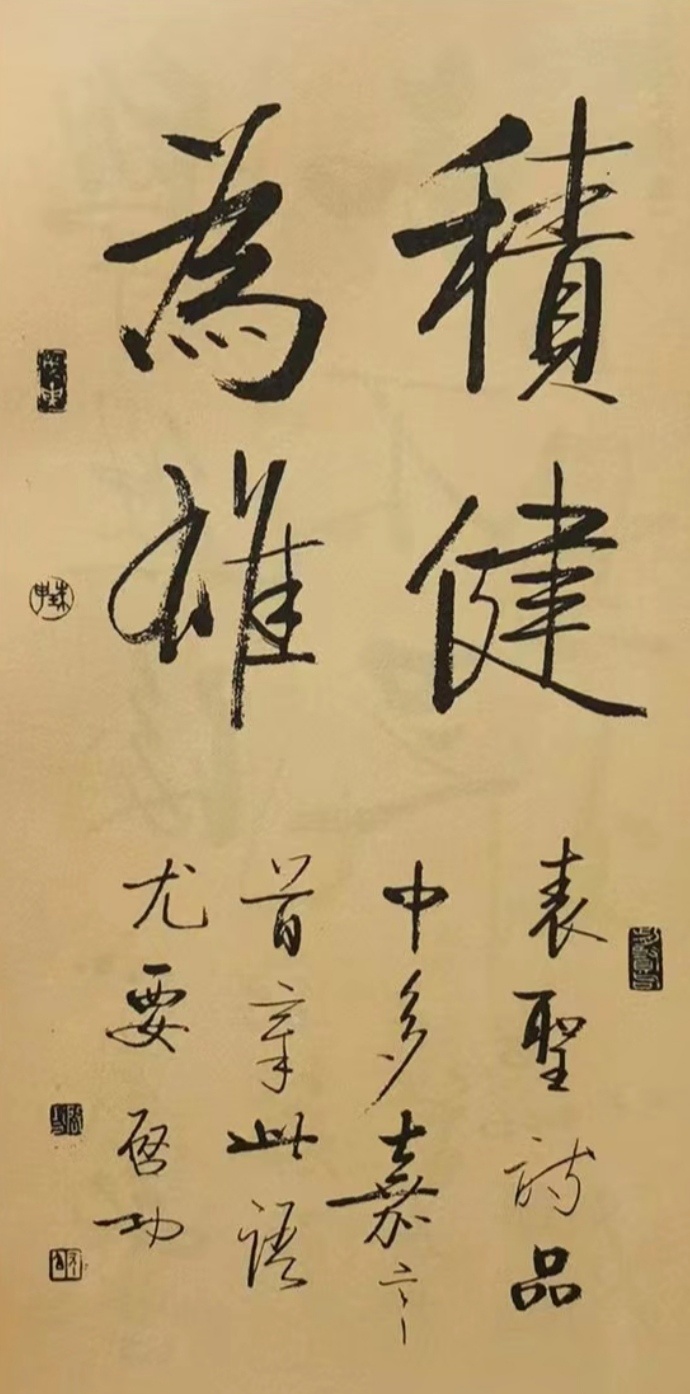 積健
為雄
表聖詩品
中多嘉言
首章此語
尤要啓功